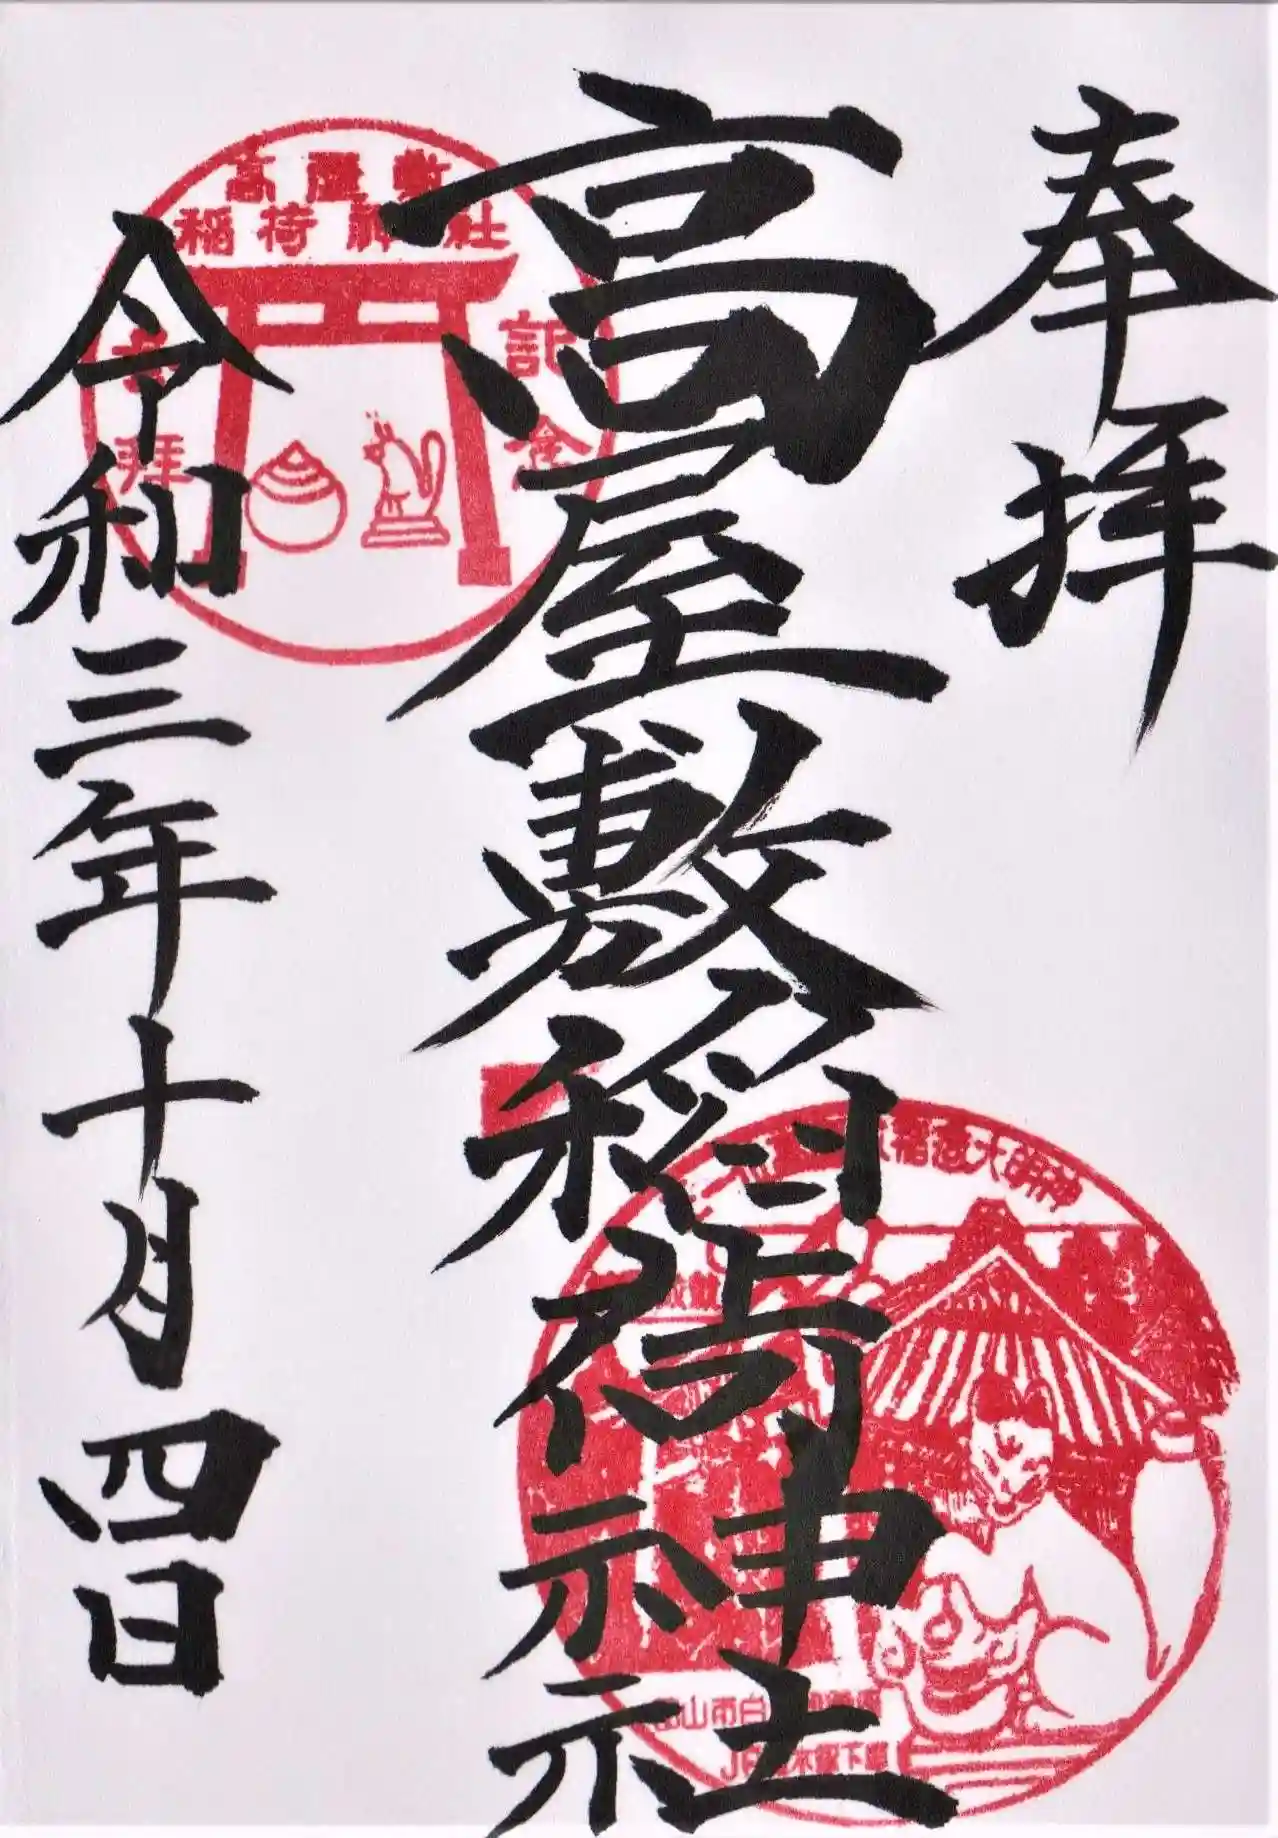 奉拝
高屋敷稲荷神社
令和三年十月四日
高屋敷
稲荷神社
記念
参拝
稲荷大明神
山市白
JR
木駅下車